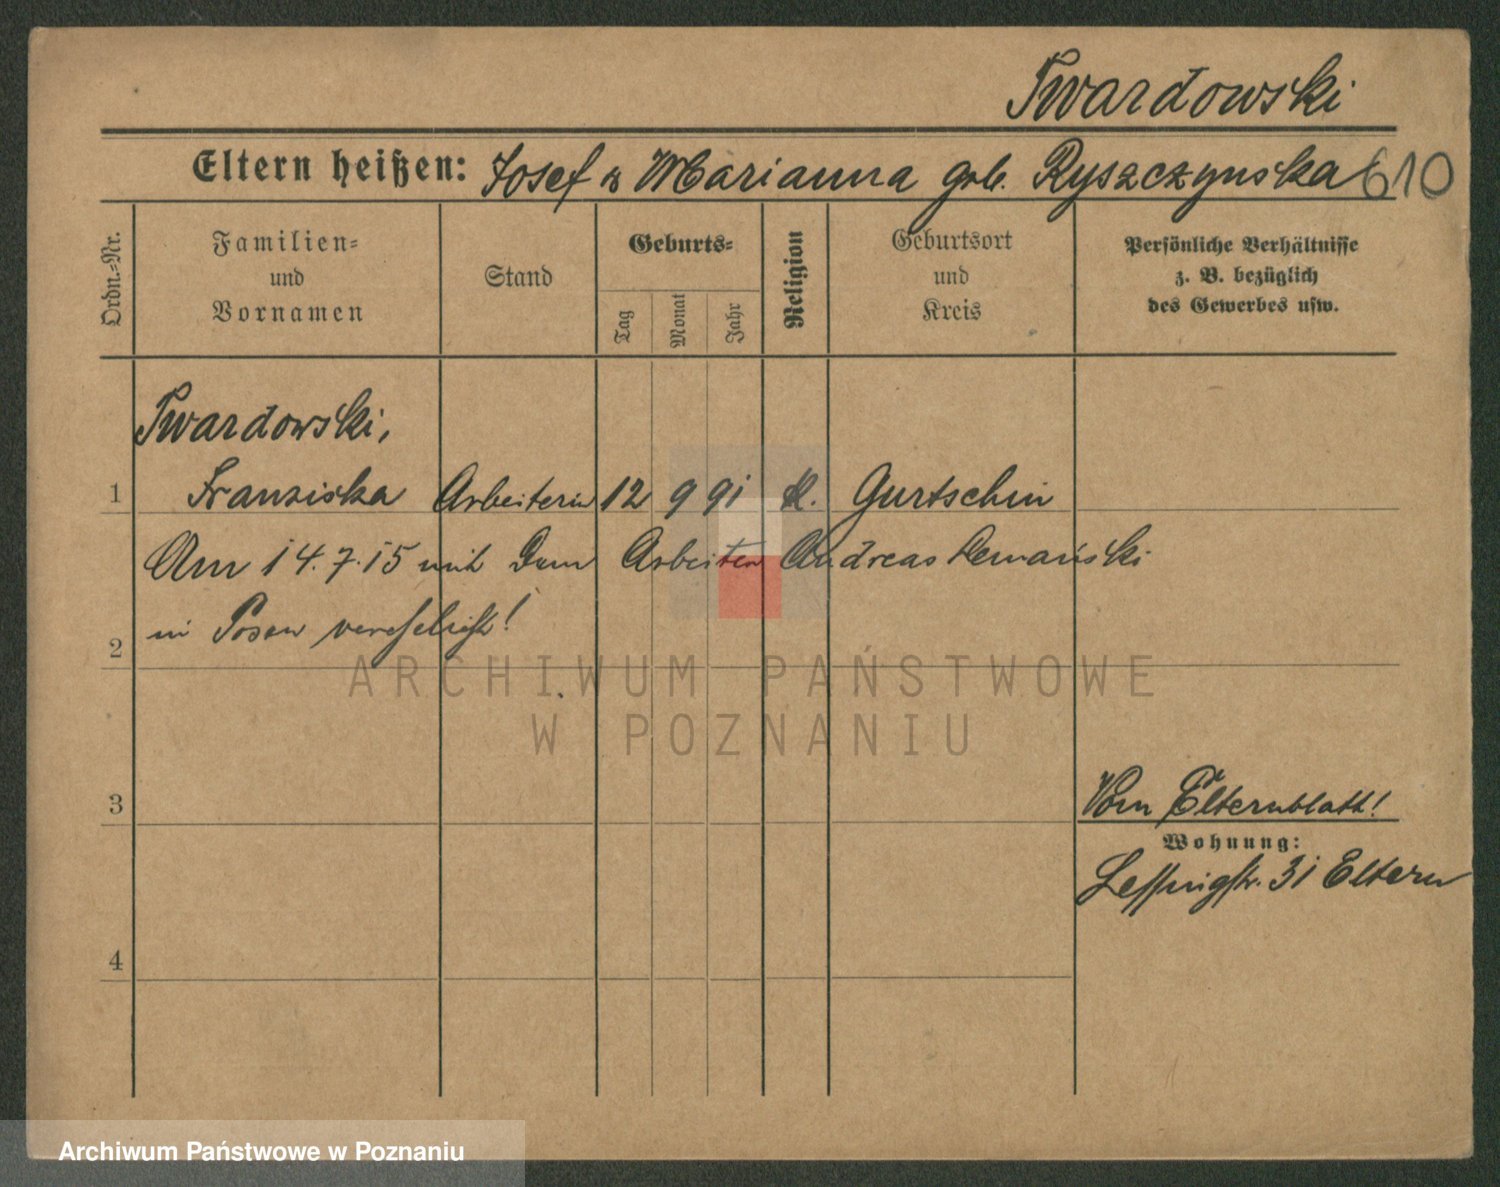 Twardowski
Eltern heißen: Josef u Marianna geb. Ryszczynska 610
Ordn.-Nr.
Familien- und Vornamen
Stand
Geburts-
Tag
Monat
Jahr
Religion
Geburtsort und Kreis
Persönliche Verhältnisse z. B. bezüglich des Gewerbes usw.
Twardowski,
1 Franziska Arbeiterin 12 9 91 k. Gurtschin
Am 14.7.15 mit dem Arbeiter Andreas
2 in Posen verehelicht!
ARCHIWUM PAŃSTWOWE
W POZNANIU
3 Vom Elternblatt!
Wohnung:
Lessingstr. 31 Eltern
4
Archiwum Państwowe w Poznaniu